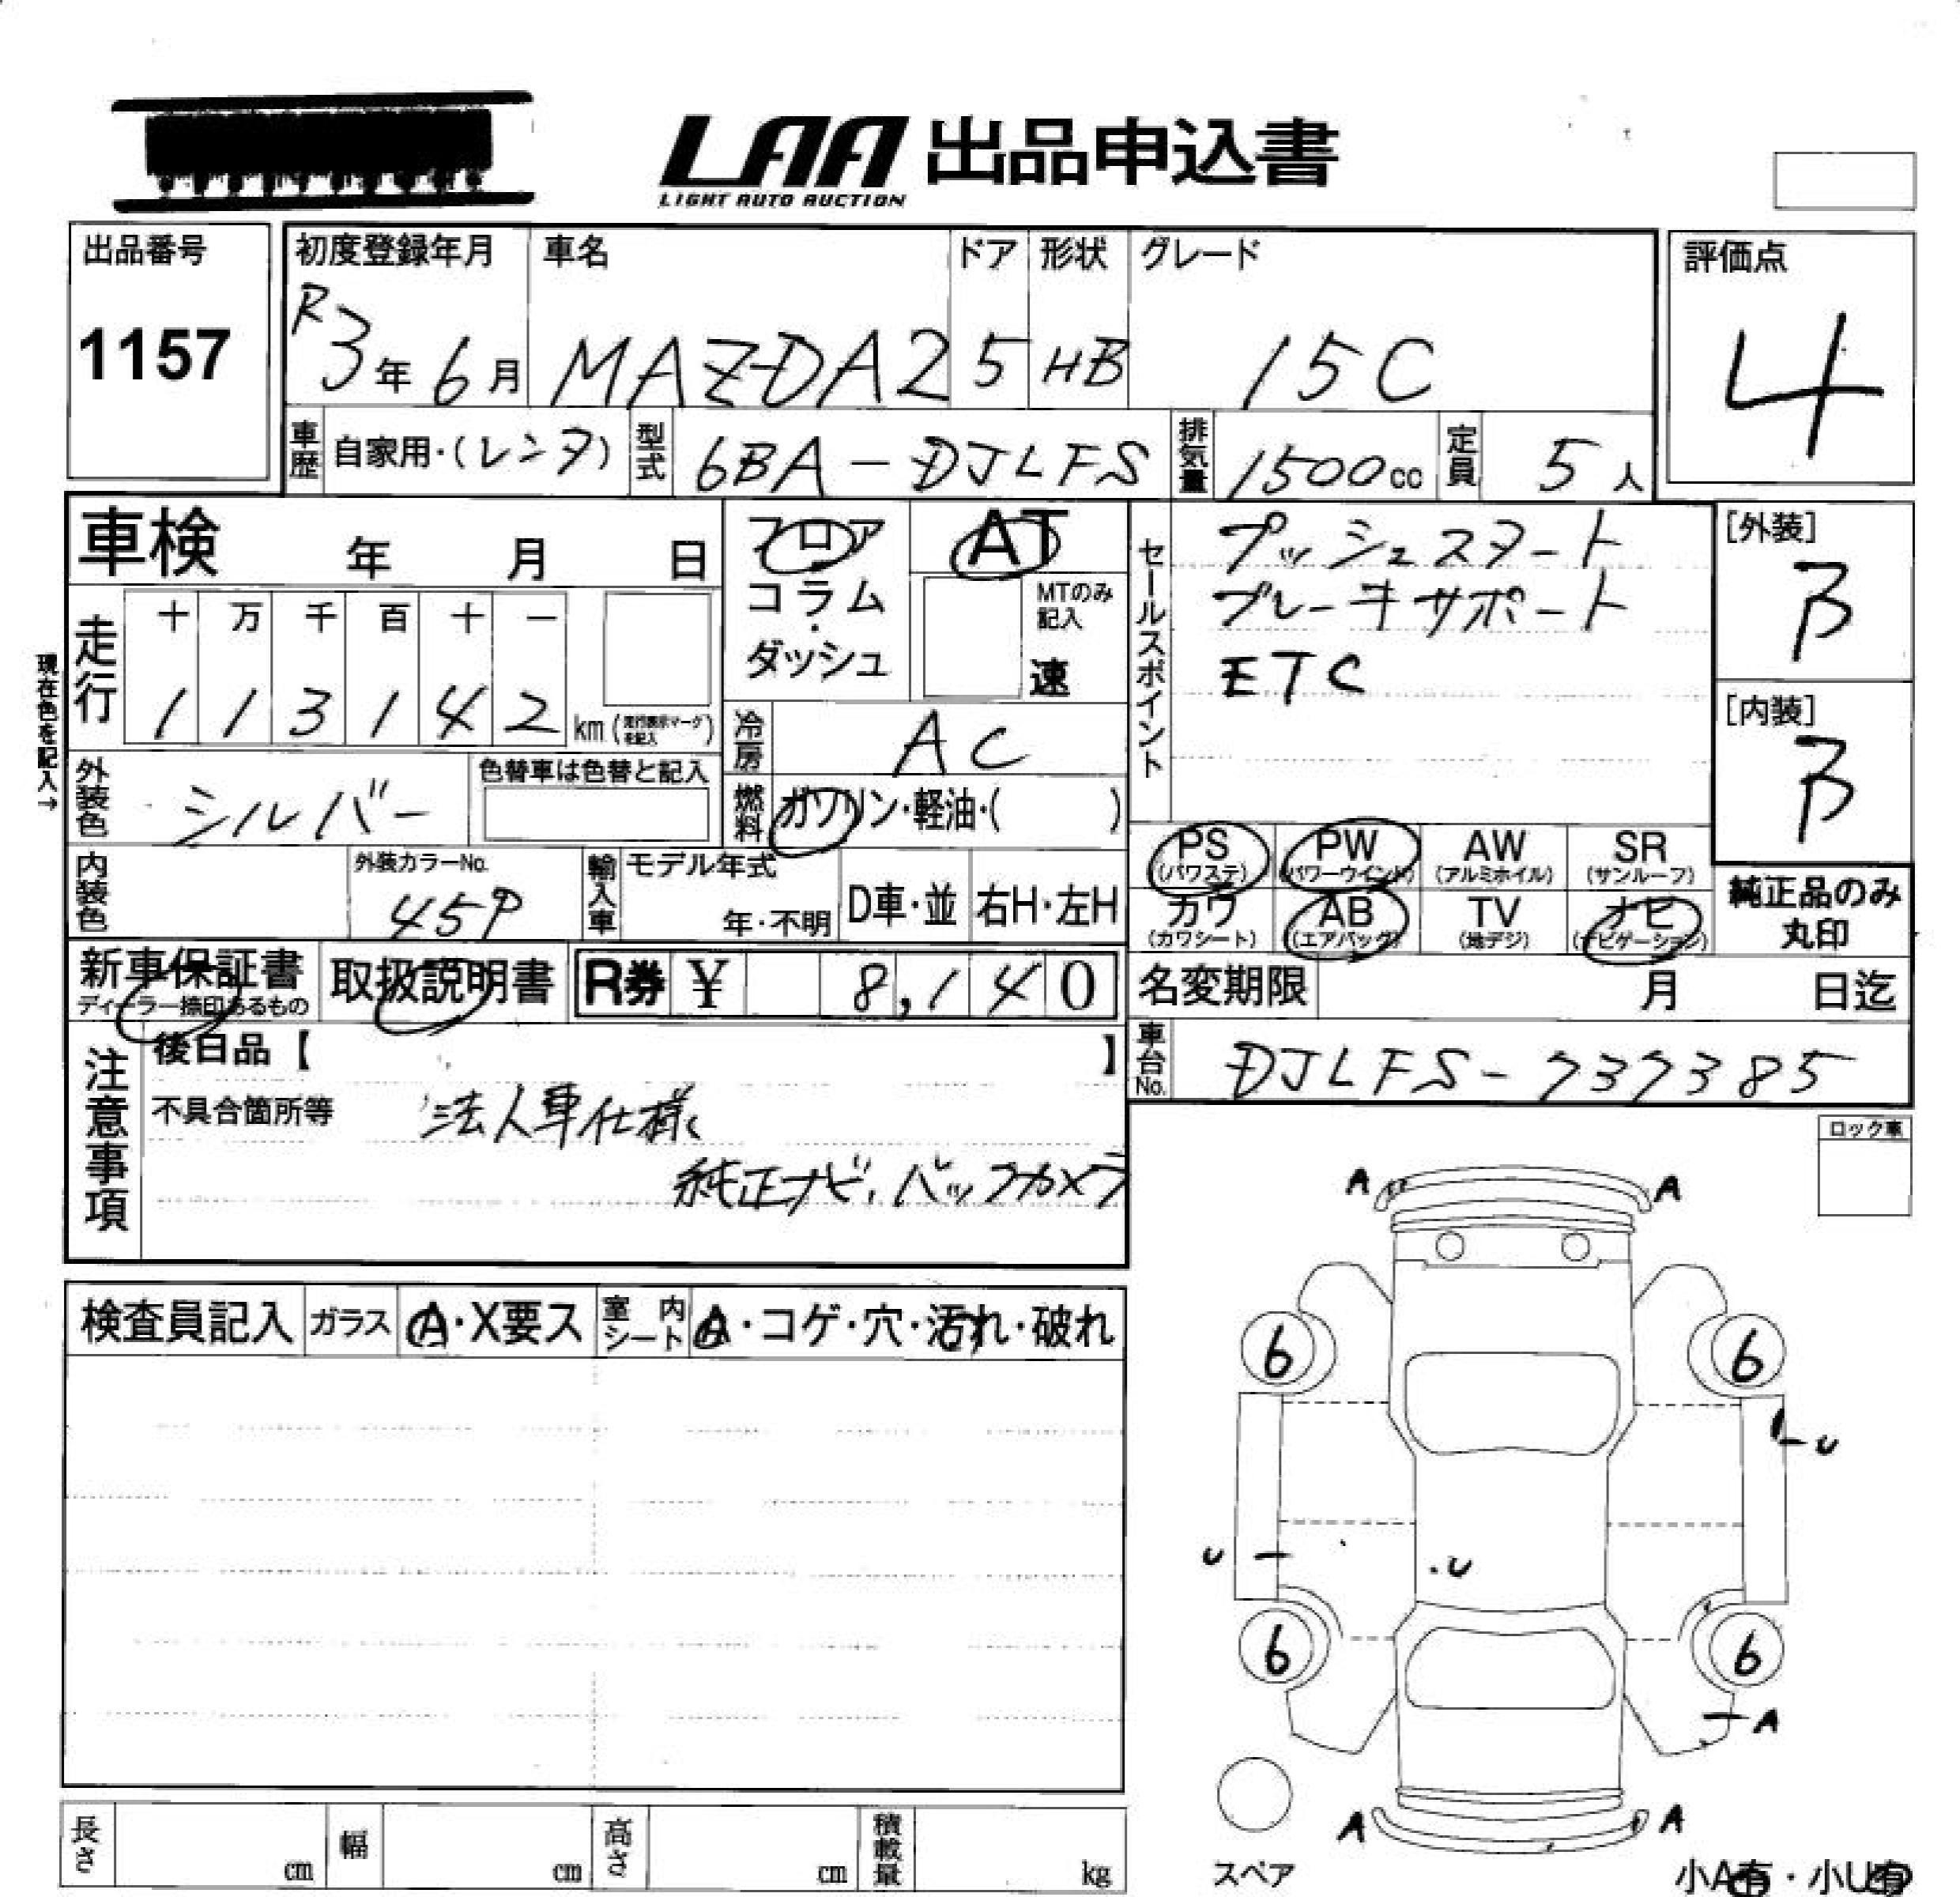 LAA 出品申込書
LIGHT AUTO AUCTION
出品番号
1157
初度登録年月
R3年6月
車名
MAZDA2
ドア
5
形状
HB
グレード
15C
評価点
4
車歴
自家用・(レンタ)
型式
6BA-DJLFS
排気量
1500cc
定員
5人
車検 年 月 日
フロア
コラム
・
ダッシュ
AT
MTのみ
記入
速
セールスポイント
プッシュスタート
ブレーキサポート
ETC
[外装]
B
[内装]
B
現在色を記入→
走行
十 万 千 百 十 一
1 1 3 1 4 2 km (走行表示マークを記入)
冷房
AC
外装色
シルバー
色替車は色替と記入
燃料
ガソリン・軽油・( )
内装色
外装カラーNo.
45P
輸入車
モデル年式
年・不明
D車・並
右H・左H
PS
(パワステ)
PW
(パワーウインド)
AW
(アルミホイル)
SR
(サンルーフ)
カワ
(カワシート)
AB
(エアバッグ)
TV
(地デジ)
ナビ
(ナビゲーション)
純正品のみ
丸印
新車保証書
ディーラー捺印あるもの
取扱説明書
R券 ¥ 8,140
名変期限 月 日迄
注意事項
後日品【 】
不具合箇所等 法人車仕様
純正ナビ、バックカメラ
車台No.
DJLFS-737385
ロック車
検査員記入
ガラス
A・X要ス
室内
シート
A・コゲ・穴・汚れ・破れ
A A
6 6
U
U U
6 6
A
A A
スペア
小A有・小U有
長さ cm
幅 cm
高さ cm
積載量 kg